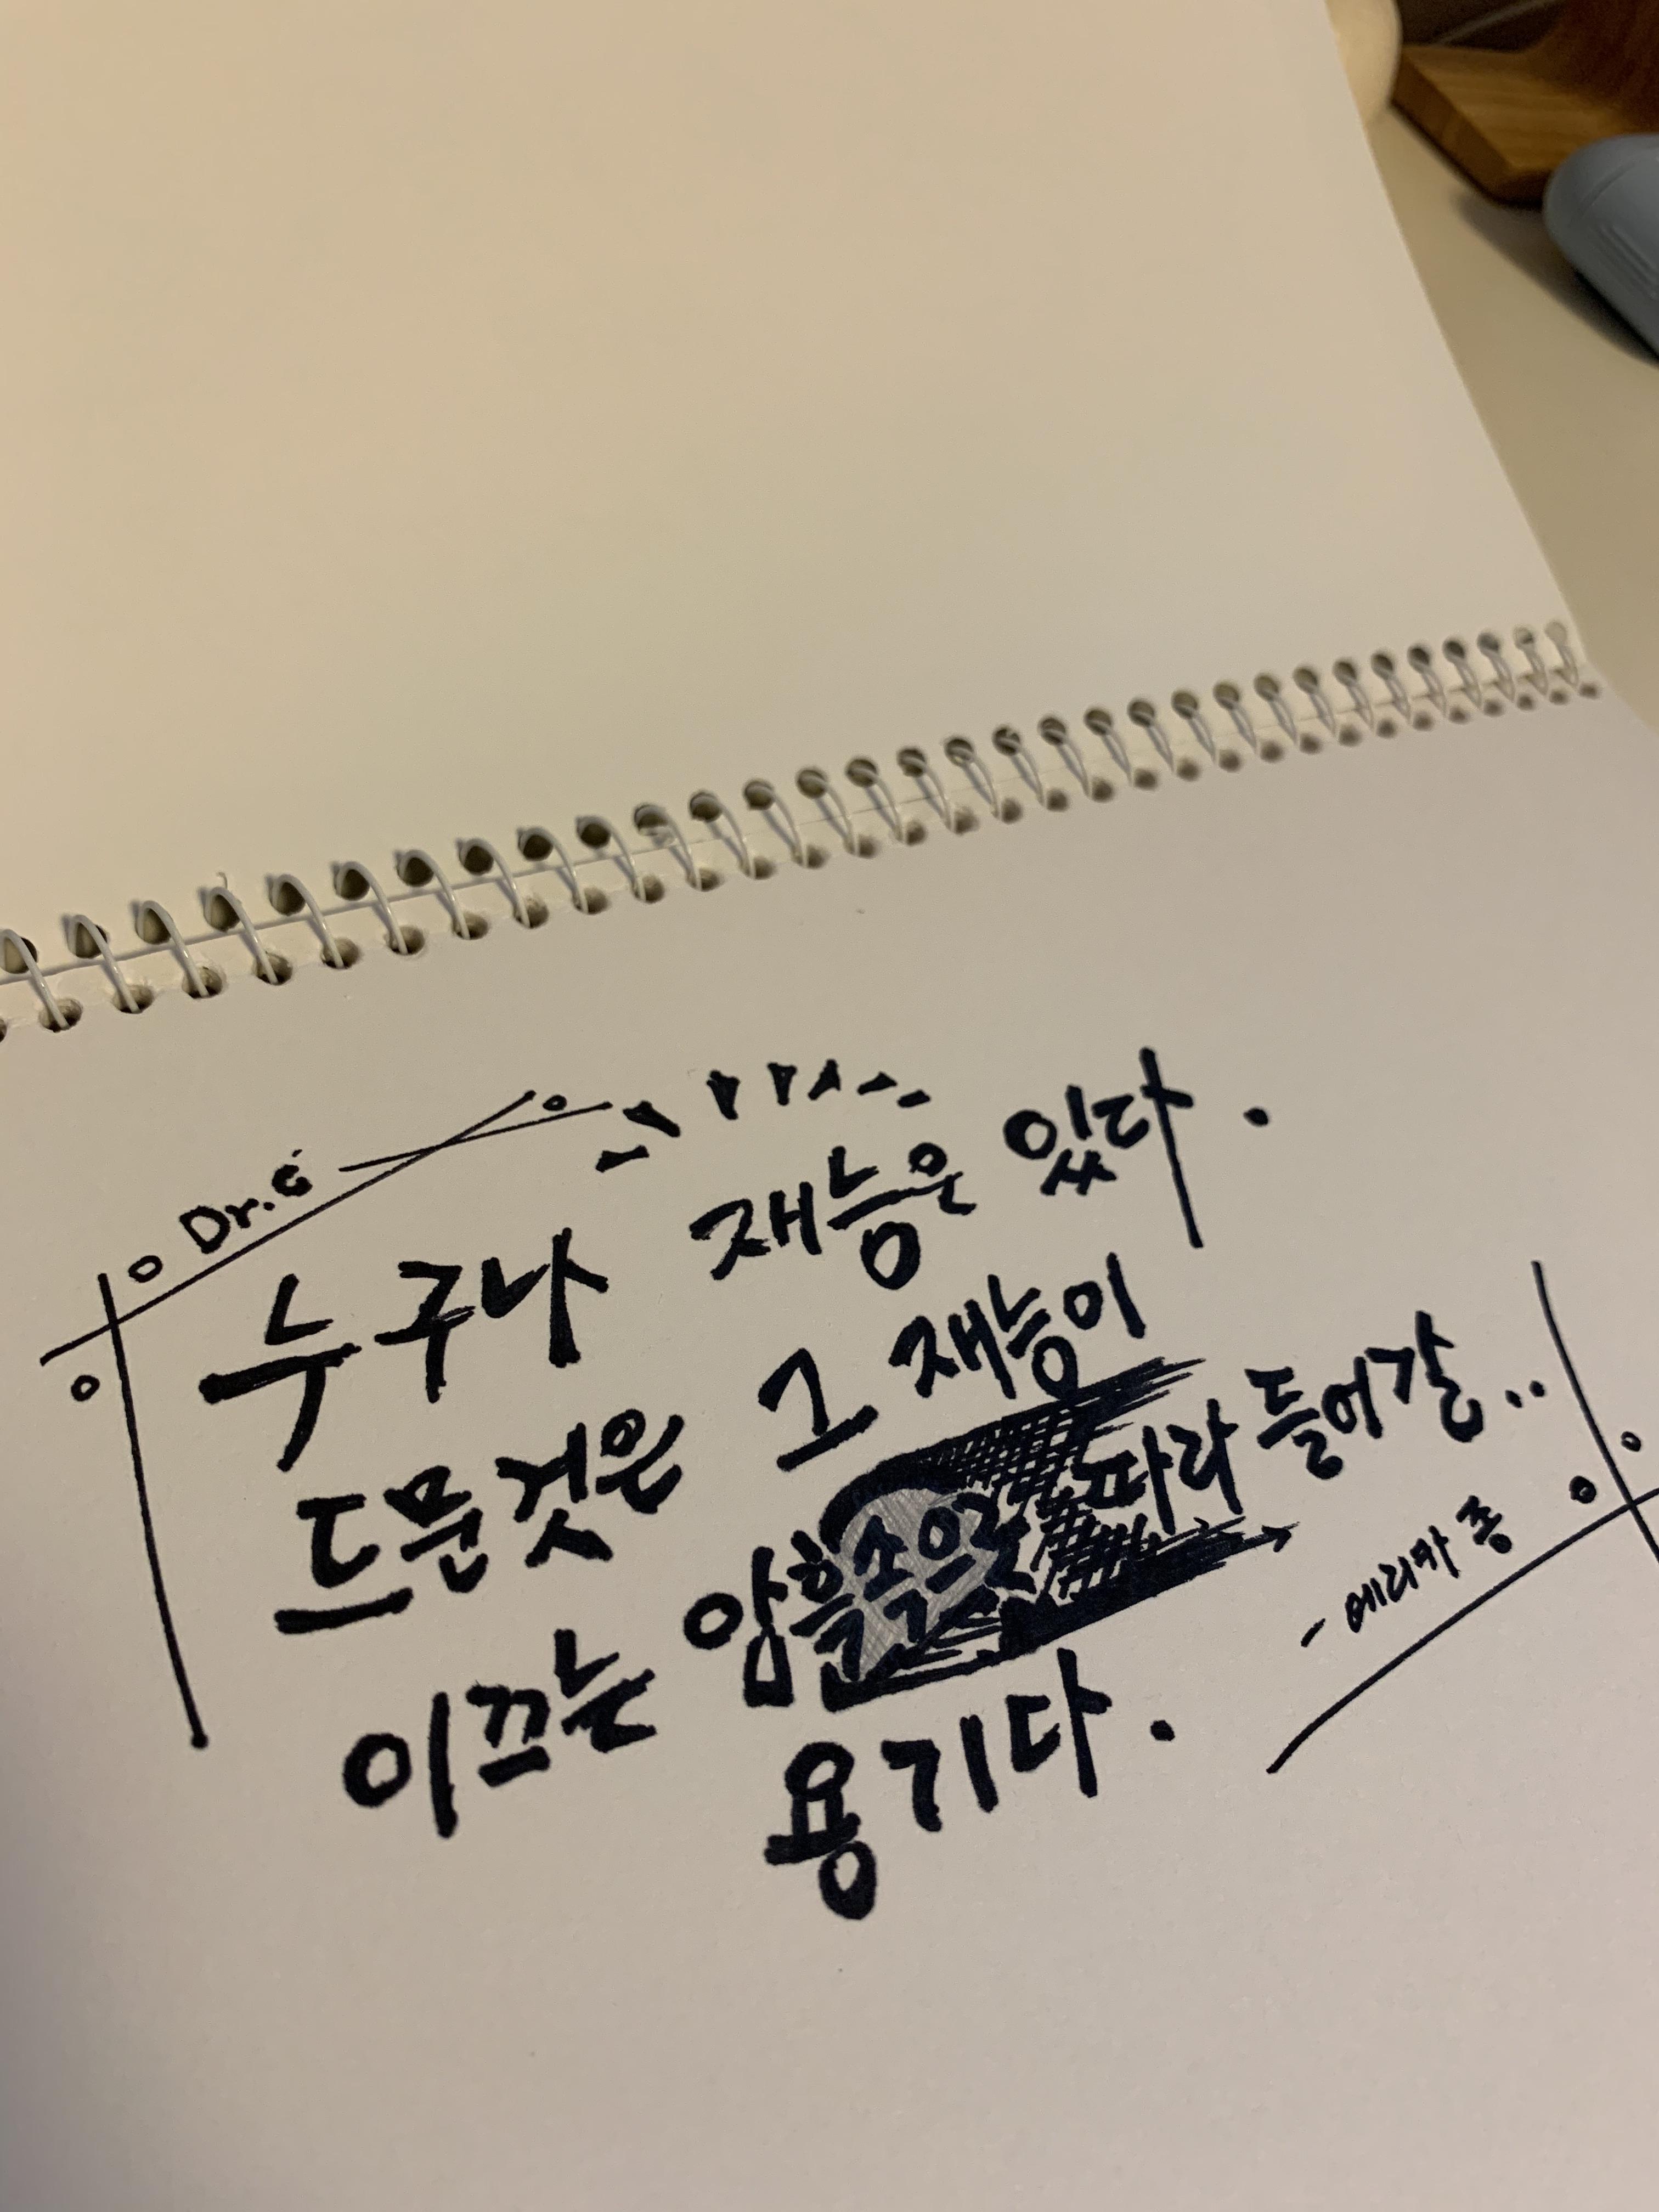 Dr.č
누구나 재능은 있다.
드문것은 그 재능이
이끄는 암흑속으로 따라 들어갈..
용기다.
- 에리카 종